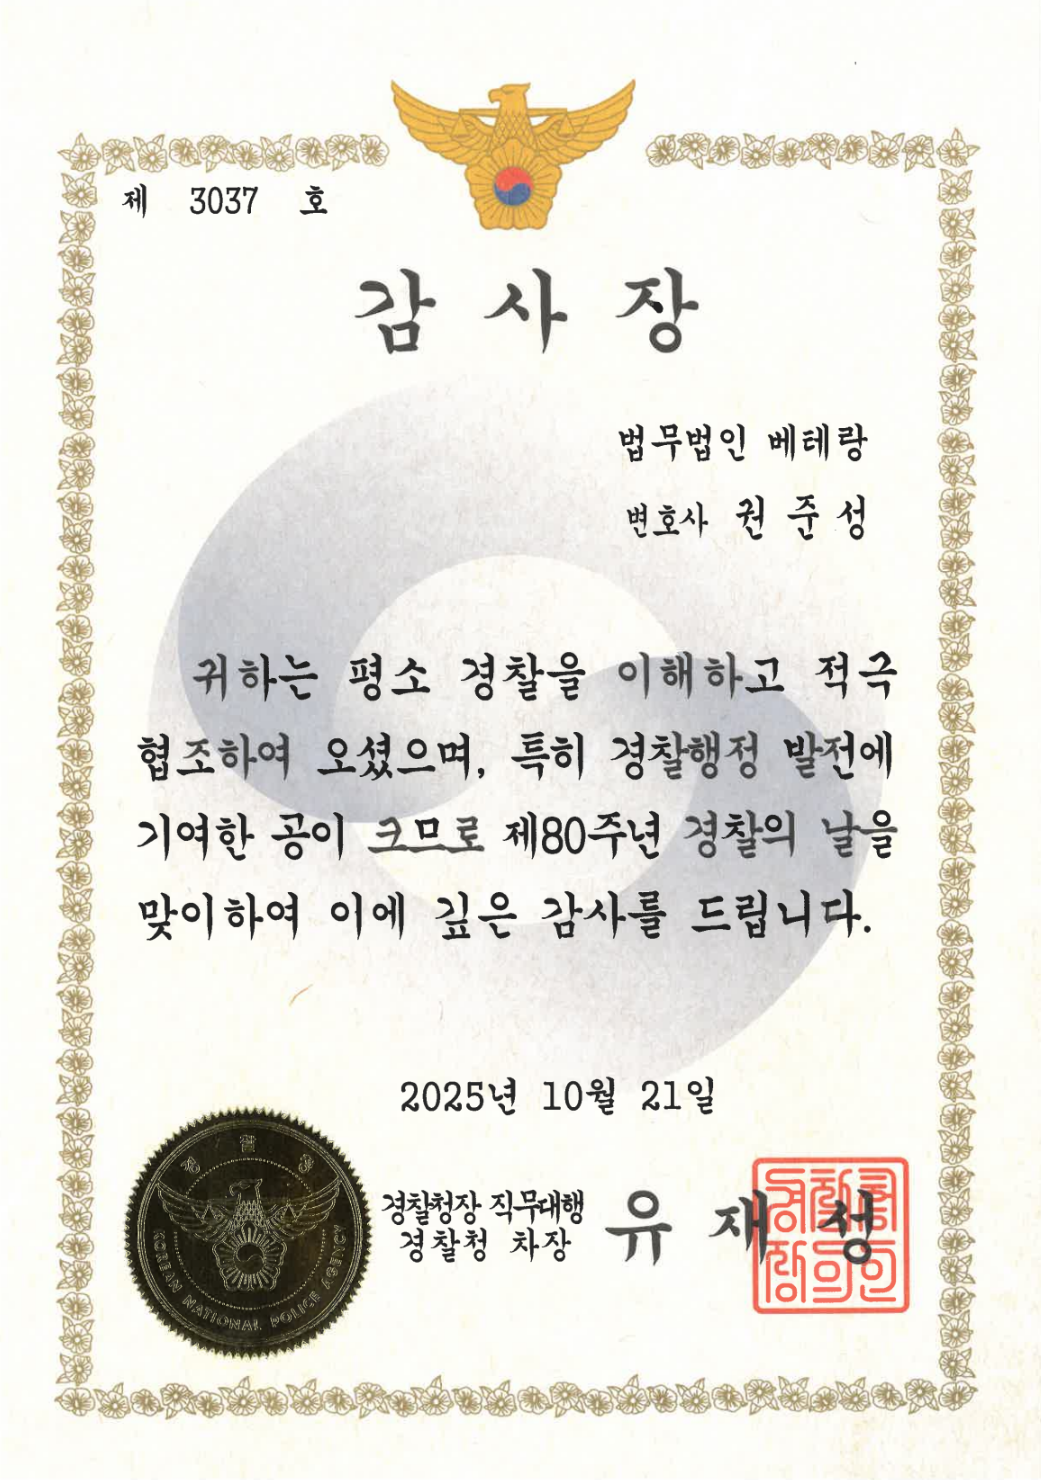 제 3037 호
감 사 장
법무법인 베테랑
변호사 권 준 성
귀하는 평소 경찰을 이해하고 적극
협조하여 오셨으며, 특히 경찰행정 발전에
기여한 공이 크므로 제80주년 경찰의 날을
맞이하여 이에 깊은 감사를 드립니다.
2025년 10월 21일
경찰청
KOREAN NATIONAL POLICE AGENCY
경찰청장 직무대행
경찰청 차장
유 재 성